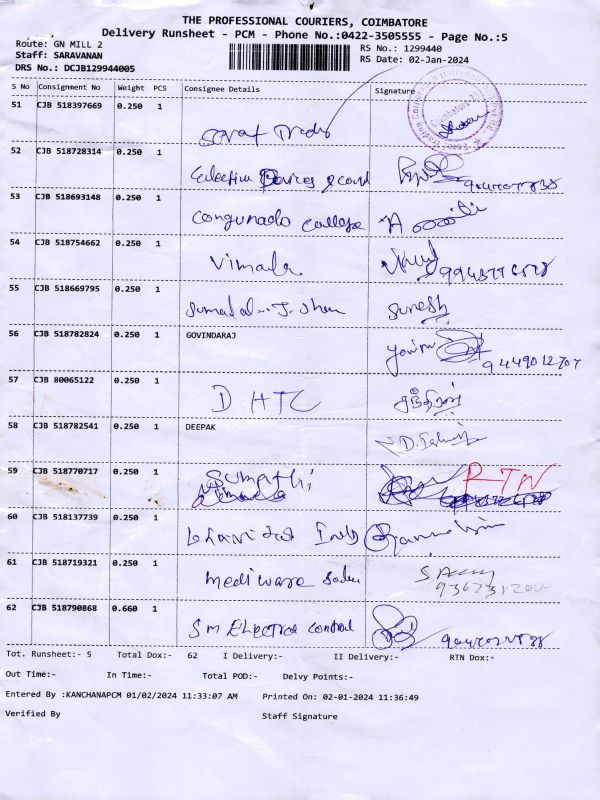 THE PROFESSIONAL COURIERS, COIMBATORE
Delivery Runsheet - PCM - Phone No.:0422-3505555 - Page No.:5
Route: GN MILL 2
RS No.: 1299440
Staff: SARAVANAN
RS Date: 02-Jan-2024
DRS No.: DCJB129944005
S No Consignment No Weight PCS Consignee Details Signature
51 CJB 518397669 0.250 1
52 CJB 518728314 0.250 1
53 CJB 518693148 0.250 1
Congunadu College
54 CJB 518754662 0.250 1
Vimala
55 CJB 518669795 0.250 1
Suresh
56 CJB 518782824 0.250 1 GOVINDARAJ
57 CJB 80065122 0.250 1
D HTC
58 CJB 518782541 0.250 1 DEEPAK
59 CJB 518770717 0.250 1
Sumathi RTN
60 CJB 518137739 0.250 1
61 CJB 518719321 0.250 1
mediware
62 CJB 518790868 0.660 1
Sm Electro control
Tot. Runsheet:- 5 Total Dox:- 62 I Delivery:- II Delivery:- RTN Dox:-
Out Time:- In Time:- Total POD:- Delvy Points:-
Entered By :KANCHANAPCM 01/02/2024 11:33:07 AM Printed On: 02-01-2024 11:36:49
Verified By Staff Signature